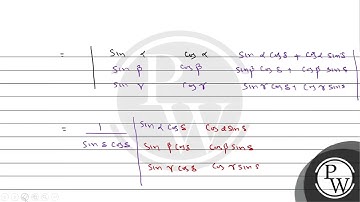 = | Sin α Cos α Sin α Cos δ + Cos α Sin δ
Sin β Cos β Sin β Cos δ + Cos β Sin δ
Sin γ Cos γ Sin γ Cos δ + Cos γ Sin δ |
= 1 / Sin δ Cos δ | Sin α Cos δ Cos α Sin δ
Sin β Cos δ Cos β Sin δ
Sin γ Cos δ Cos γ Sin δ
PW